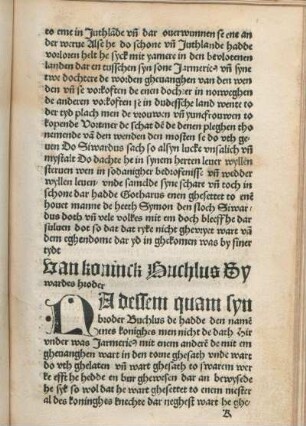 to eme in Juthlāde vñ dar ouerwunnen se ene an
der werue Alse he do schone vñ Juthlande hadde
vorloren helt he syck mit yamer in den bevlotenen
landen dar en tusschen syn sone Jarmericꝰ vñ syne
twe dochtere de worden gheuanghen van den wen
den vñ se vorkoften de enen dochter in norweghen
de anderen vorkoften se in dudessche land wente to
der tyd plach men de vrouwen vñ yunefrouwen to
kopende Vortmer de schat dē de denen pleghen tho
nemende vā den wenden den mosten se do vth ghe
uen Do Siwardus sach so alsyn luck vnsalich vñ
mystale Do dachte he in synem herten leuer wyllen
steruen wen in sodanigher bedrofenisse vñ wedder
wyllen leuen vnde samelde syne schart vñ toch in
schone dar hadde Gotharus enen ghesettet to enē
houet manne de heeth Symon den sloch Siwar
dus doth vñ vele volkes mit em doch bleeff he dar
suluen dot so dat dat ryke nicht ghewyet wart vā
dem eghendome dar yd in ghekomen was by siner
tyde
Van koninck Buchlus Sy
wardes broder
NA dessem quam syn
broder Buchlus de hadde den namē
enes konighes men nicht de dath Hir
vnder was Jarmericꝰ mit enem anderē de mit em
gheuanghen wart in den torne ghesath vnde wart
do vth ghelaten vñ wart ghesath to swarem wer
ke efft he hedde en bur ghewesen dar an bewysede
he syk so wol dat he wart ghesettet to enem mester
al des koninghes knechte dar neghest wart he ghe
A